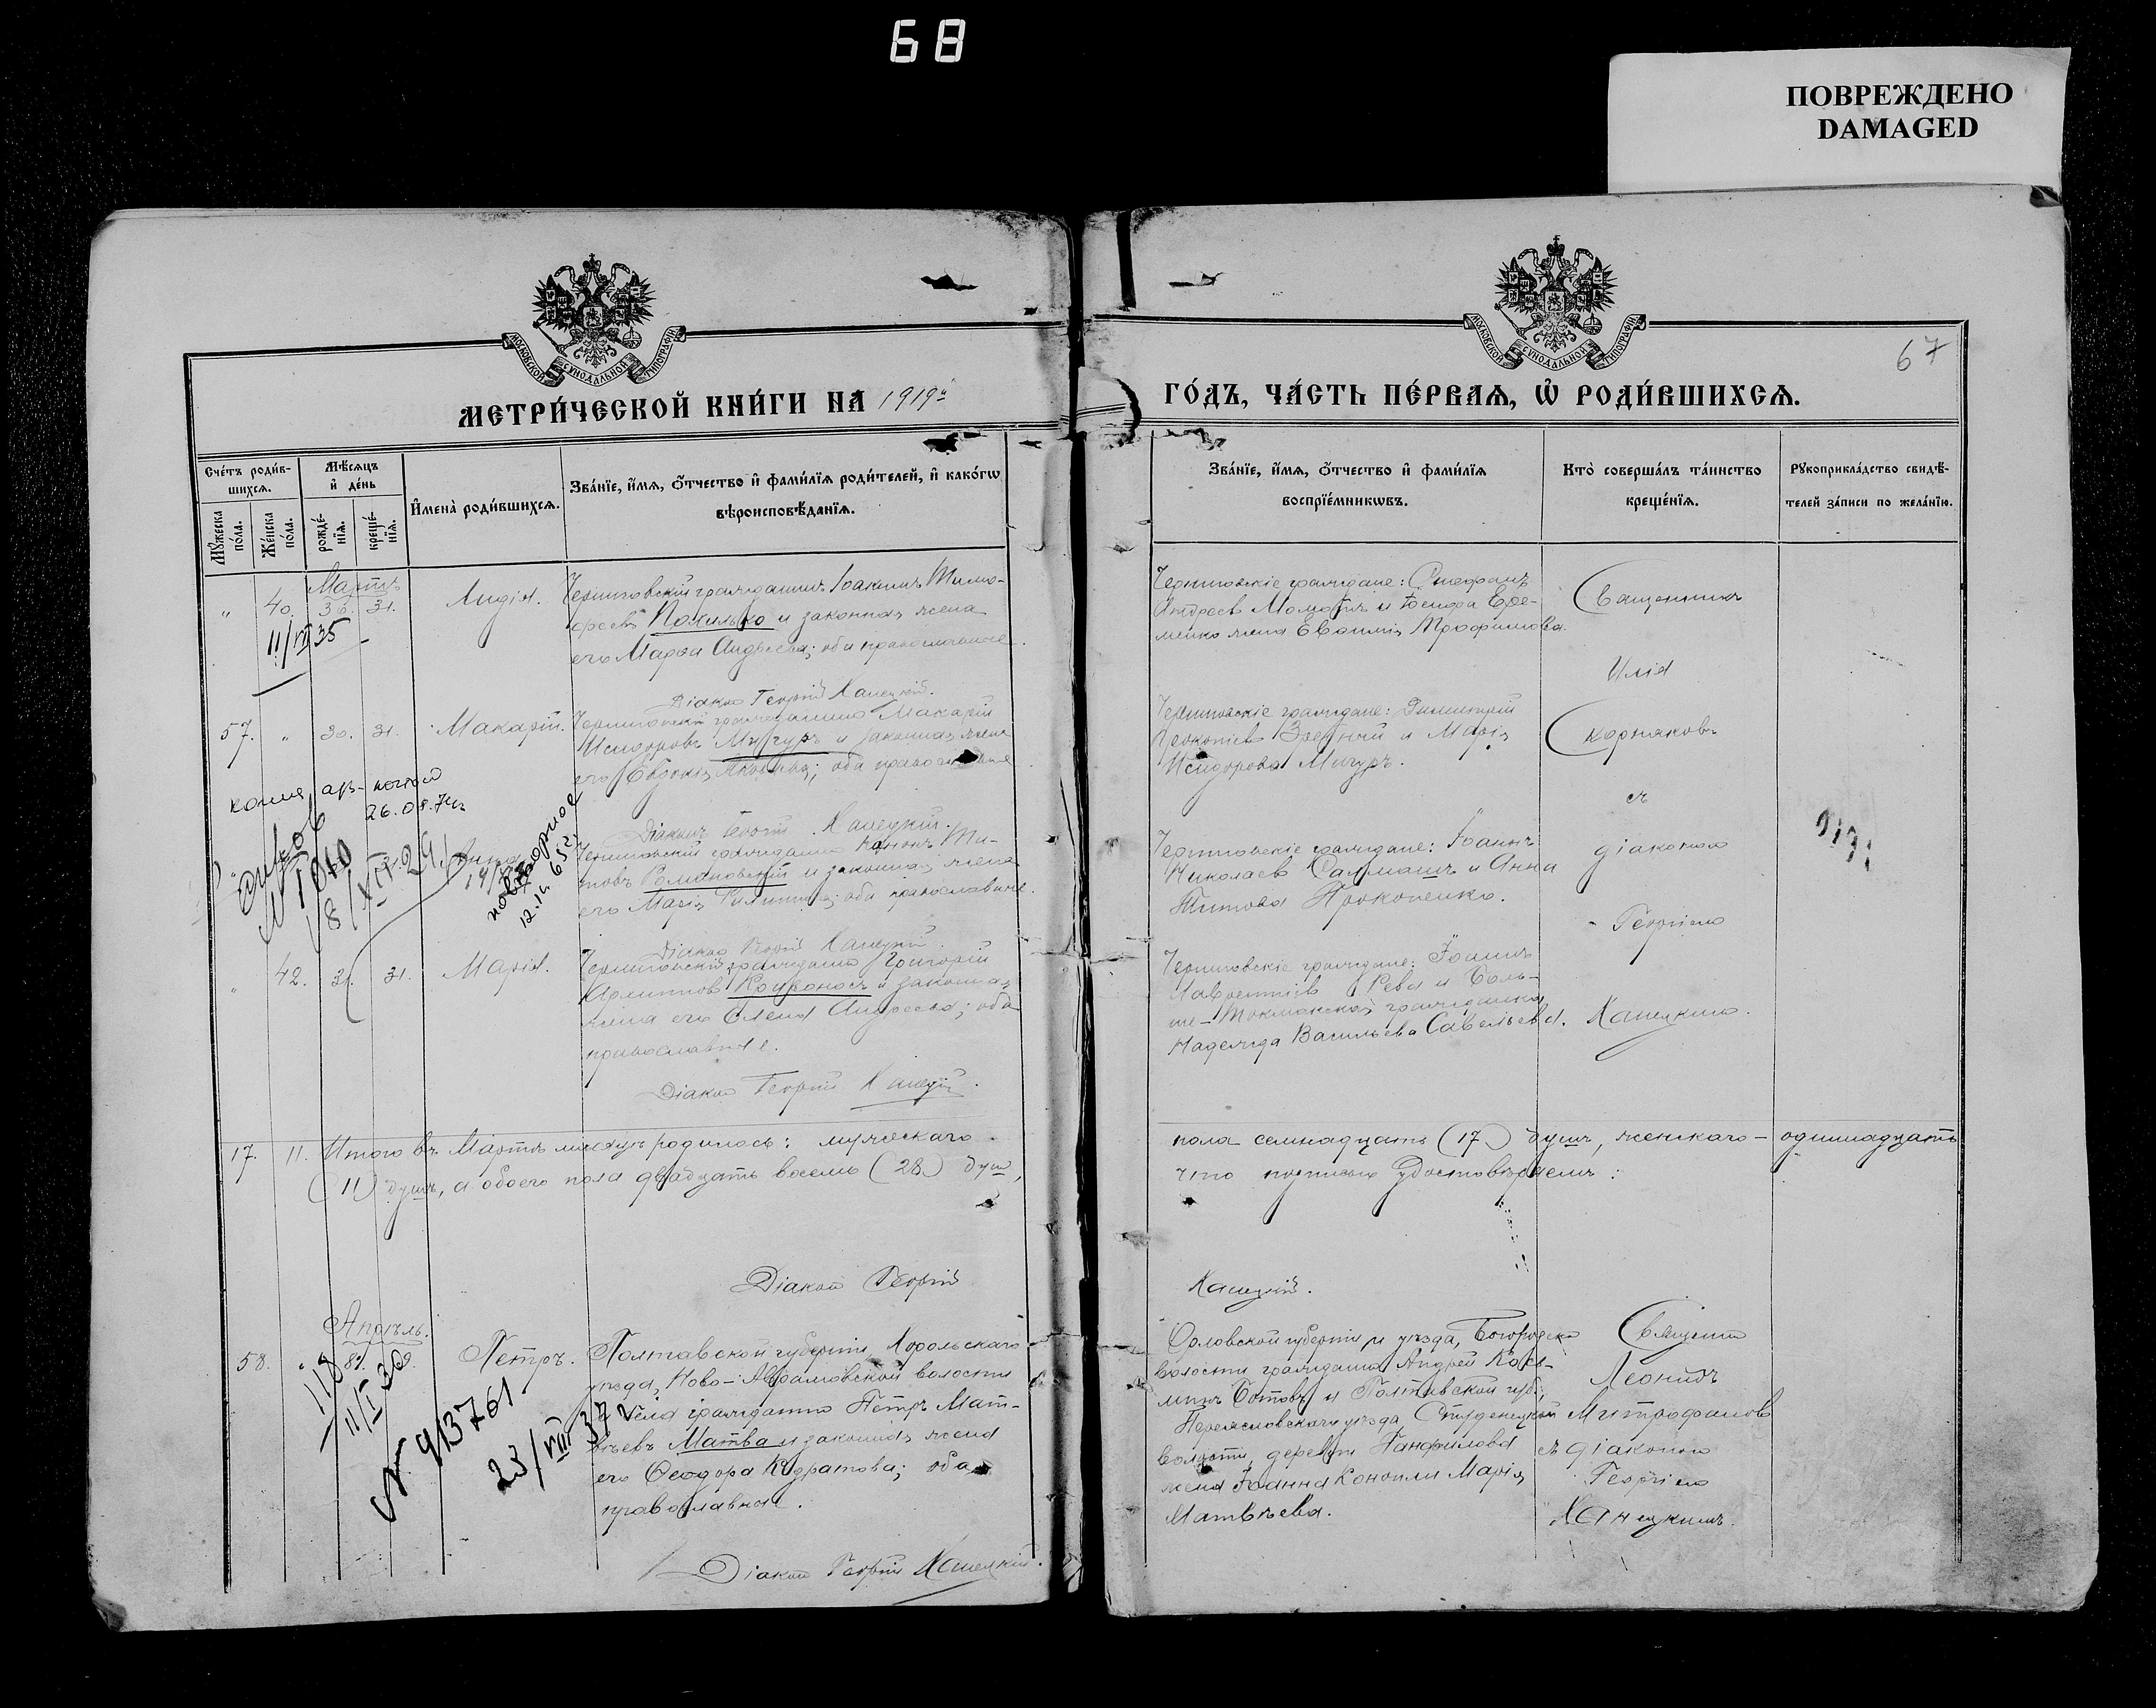 68
ПОВРЕЖДЕНО
DAMAGED
МОСКОВСКОЙ СѴНОДАЛЬНОЙ ТИПОГРАФІИ
МОСКОВСКОЙ СѴНОДАЛЬНОЙ ТИПОГРАФІИ
67
МЕТРИ́ЧЕСКОЙ КНИ́ГИ НА 1919й
ГО́ДЪ, ЧА́СТЬ ПЕ́РВАѦ, Ѡ҆ РОДИ́ВШИХСѦ.
Сче́тъ роди́в-
шихсѧ.
Мꙋ́жеска по́ла.
Же́нска по́ла.
Мѣ́сѧцъ
и҆ де́нь
рожде́-
нїѧ.
креще́-
нїѧ.
И҆мена̀ роди́вшихсѧ.
Зва́нїе, и҆́мѧ, ѻ҆́тчество и҆ фами́лїѧ роди́телей, и҆ како́гѡ
вѣроисповѣ́данїѧ.
Зва́нїе, и҆́мѧ, ѻ҆́тчество и҆ фами́лїѧ
воспрїе́мникѡвъ.
Кто̀ соверша́лъ та́инство
креще́нїѧ.
Рꙋкоприкла́дство свидѣ́-
телей за́писи по жела́нїю.
Мартъ
" 40. 30. 31. Лидія.
Черниговскій гражданинъ Іоакимъ Тимо-
феевъ Похилько и законная жена
его Марія Андреева; оба православные.
Діаконъ Георгій Ханецкій.
11/VII 35
Черниговскіе граждане: Стефанъ
Андреев и Ефре-
менко жена Евфимія Трофимова.
Священникъ
Илія
Корняковъ
съ
діакономъ
Георгіемъ
Ханецкимъ.
57. " 30. 31. Макарій.
Черниговскій гражданинъ Макарій
Исидоровъ Мигуръ и законная жена
его Евдокія Яковлева; оба православные.
Діаконъ Георгій Ханецкій.
Черниговскіе граждане: Димитрій
Прокопіев и Марія
Исидорова Мигуръ.
копия
26.08.74г
N 1010
18/XII 29
повторное
12.12.65г.
Анна
Черниговскій гражданинъ Ти-
товъ Романовскій и законная жена
его Марія Филиппова; оба православные.
Діаконъ Георгій Ханецкій.
Черниговскіе граждане: Іоаннъ
Николаевъ Салмашъ и Анна
Титова Прокопенко.
" 42. 31. 31. Марія.
Черниговскій гражданинъ Григорій
Архиповъ Коцроносъ и законная
жена его Елена Андреева; оба
православные.
Діаконъ Георгій Ханецкій.
Черниговскіе граждане: Іоаннъ
Лаврентіевъ Рева и Боль-
ше-Токмакская гражданка
Надежда Васильева Савельева.
17. 11. Итого въ Мартѣ мѣсяцѣ родилось: мужескаго
пола семнадцать (17) душъ, женскаго - одиннадцать
(11) душъ, а обоего пола двадцать восемь (28) душ,
что подписью удостовѣряемъ:
Діаконъ Георгій
Ханецкій.
Апрѣль.
58. " 8. 9. Петръ.
Полтавской губерніи, Хорольскаго
уѣзда, Ново-Аврамовской волости
села гражданинъ Петръ Мат-
вѣевъ Матва и законная жена
его Ѳеодора Кодратова; оба
православные.
Діаконъ Георгій Ханецкій.
118
11/I 36
N 913761
23/VIII 37г
Орловской губерніи и уѣзда, Богородск.
волости гражданинъ Андрей Кось-
минъ Ботовъ и Полтавской губ.,
Переяславскаго уѣзда, Студенецкой
волости, деревни Панфилова
жена Іоанна Конопли Марія
Матвѣева.
Священникъ
Леонидъ
Митрофановъ
съ діакономъ
Георгіемъ
Ханецкимъ.